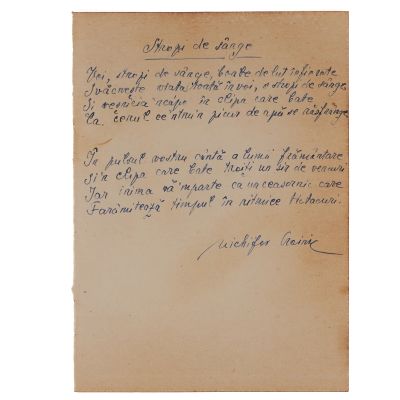 Stropi de sânge
Voi, stropi de sânge, boabe de lut înfierbinte
Svâcnește viața toată în voi, o stropi de sânge,
Și veșnicia încape în clipa care bate
Ca cerul ce într'un picur de apă se răsfrânge,
În pulsul vostru cântă a lumii frământare
Și'n clipa care bate trăiți un șir de veacuri
Iar inima vă împarte ca un ceasornic care
Farâmitează timpul în ritmice tictacuri.
Nichifor Crainic